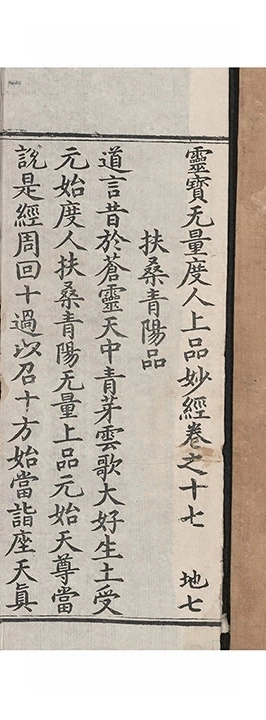 靈寶无量度人上品妙經卷之十七 地七
扶桑青陽品
道言昔於蒼靈天中青芽雲歌大好生土受
元始度人扶桑青陽无量上品元始天尊當
說是經周回十過以召十方始當詣座天真